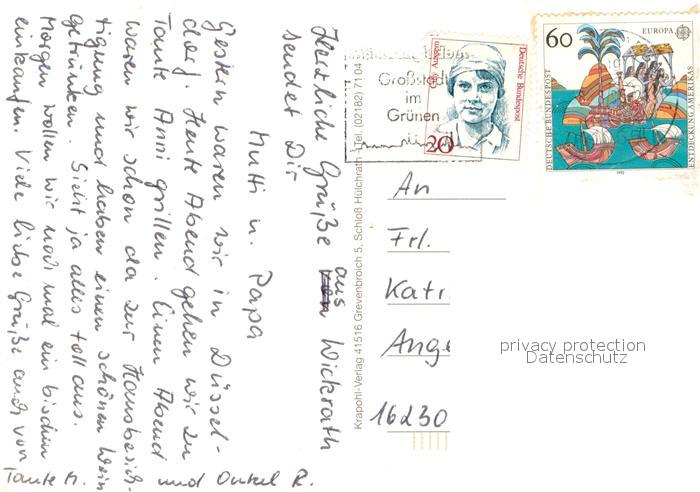 Herzliche Grüße aus Wickrath
sendet Dir
Mutti u. Papa
Gestern waren wir in Düssel-
dorf. Heute Abend gehen wir zu
Tante Anni grillen. Einen Abend
waren wir schon da zur Hausbesich-
tigung und haben einen schönen Wein
getrunken. Sieht ja alles toll aus.
Morgen wollen wir noch mal ein bischen
einkaufen. Viele liebe Grüße auch von
Tante A. und Onkel R.
Krapohl-Verlag 41516 Grevenbroich 5, Schloß Hülchrath Tel. (02182) 7104
Großstadt
im
Grünen
Deutsche Bundespost
20
60
EUROPA
DEUTSCHE BUNDESPOST
ENTDECKUNG AMERIKAS
1992
An
Frl.
Kati
Ange
16230
privacy protection
Datenschutz